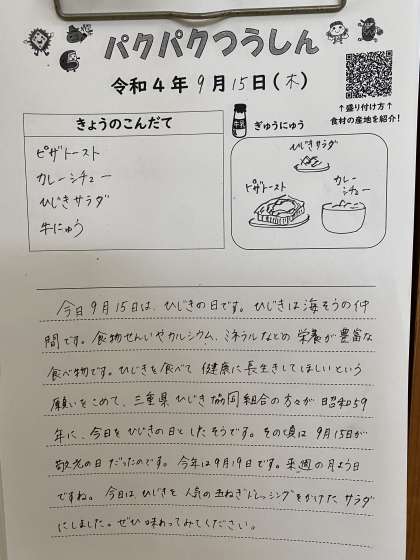 パクパクつうしん
令和4年9月15日(木)
↑盛り付け方↑
食材の産地を紹介!
きょうのこんだて
ピザトースト
カレーシチュー
ひじきサラダ
牛にゅう
牛乳
ぎゅうにゅう
ひじきサラダ
ピザトースト
カレー
シチュー
今日9月15日は、ひじきの日です。ひじきは海そうの仲
間です。食物せんいやカルシウム、ミネラルなどの栄養が豊富な
食べ物です。ひじきを食べて健康に長生きしてほしいという
願いをこめて、三重県ひじき協同組合の方々が昭和59
年に、今日をひじきの日としたそうです。その頃は9月15日が
敬老の日だったのです。今年は9月19日です。来週の月よう日
ですね。今日はひじきを人気の玉ねぎドレッシングをかけたサラダ
にしました。ぜひ味わってみてください。